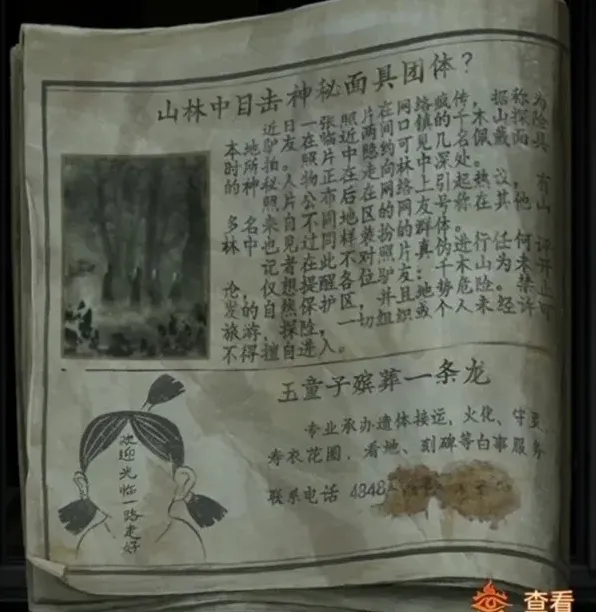 山林中目击神秘面具团体？
近日一张照片在网络疯传，据称为
本地驴友在临近两间口镇的千木山探险
时所拍。照片中隐约可见几名佩戴面具
的神秘人物正走向林中深处。
照片公布后在网络上引起热议，有
多名来自不同地区的网友称在其他山
林中也见过同样装扮的群体。
记者在此不对照片真伪进行任何评
论，仅想提醒各位驴友：千木山为未开
发的自然保护区，并且地势危险。禁止
旅游，探险，一切组织或个人未经许可
不得擅自进入。
玉童子殡葬一条龙
专业承办遗体接运，火化、守灵、
寿衣花圈、看地、刻碑等白事服务
联系电话 4848
欢迎光临一路走好
查看